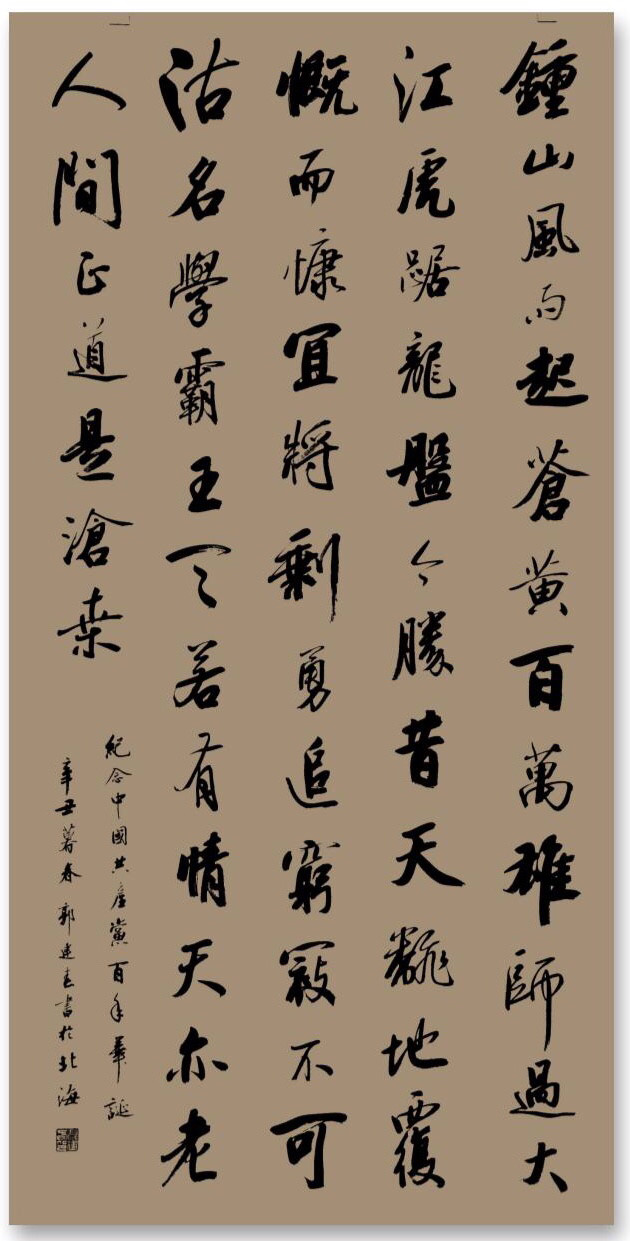 鍾山風雨起蒼黃百萬雄師過大
江虎踞龍盤今勝昔天翻地覆
慨而慷宜將剩勇追窮寇不可
沽名學霸王天若有情天亦老
人間正道是滄桑
紀念中國共產黨百年華誕
辛丑暮春郭書於北海